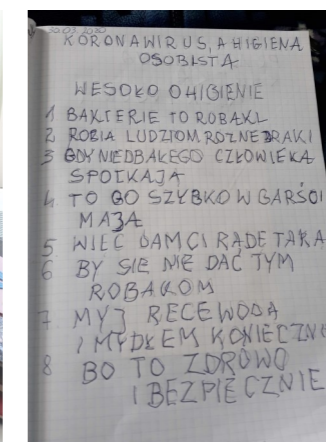 30.03.2020
KORONAWIRUS, A HIGIENA
OSOBISTA
WESOŁO O HIGIENIE
1 BAKTERIE TO ROBAKI
2 ROBIA LUDZIOM ROZNE DRAKI
3 GDY NIEDBAŁEGO CZŁOWIEKA
SPOTKAJĄ
4 TO GO SZYBKO W GARŚCI
MAJĄ
5 WIEC DAM CI RADE TAKA
6 BY SIE NIE DAĆ TYM
ROBAKOM
7 MYJ RECE WODA
I MYDŁEM KONIECZNIE
8 BO TO ZDROWO
I BEZPIECZNIE